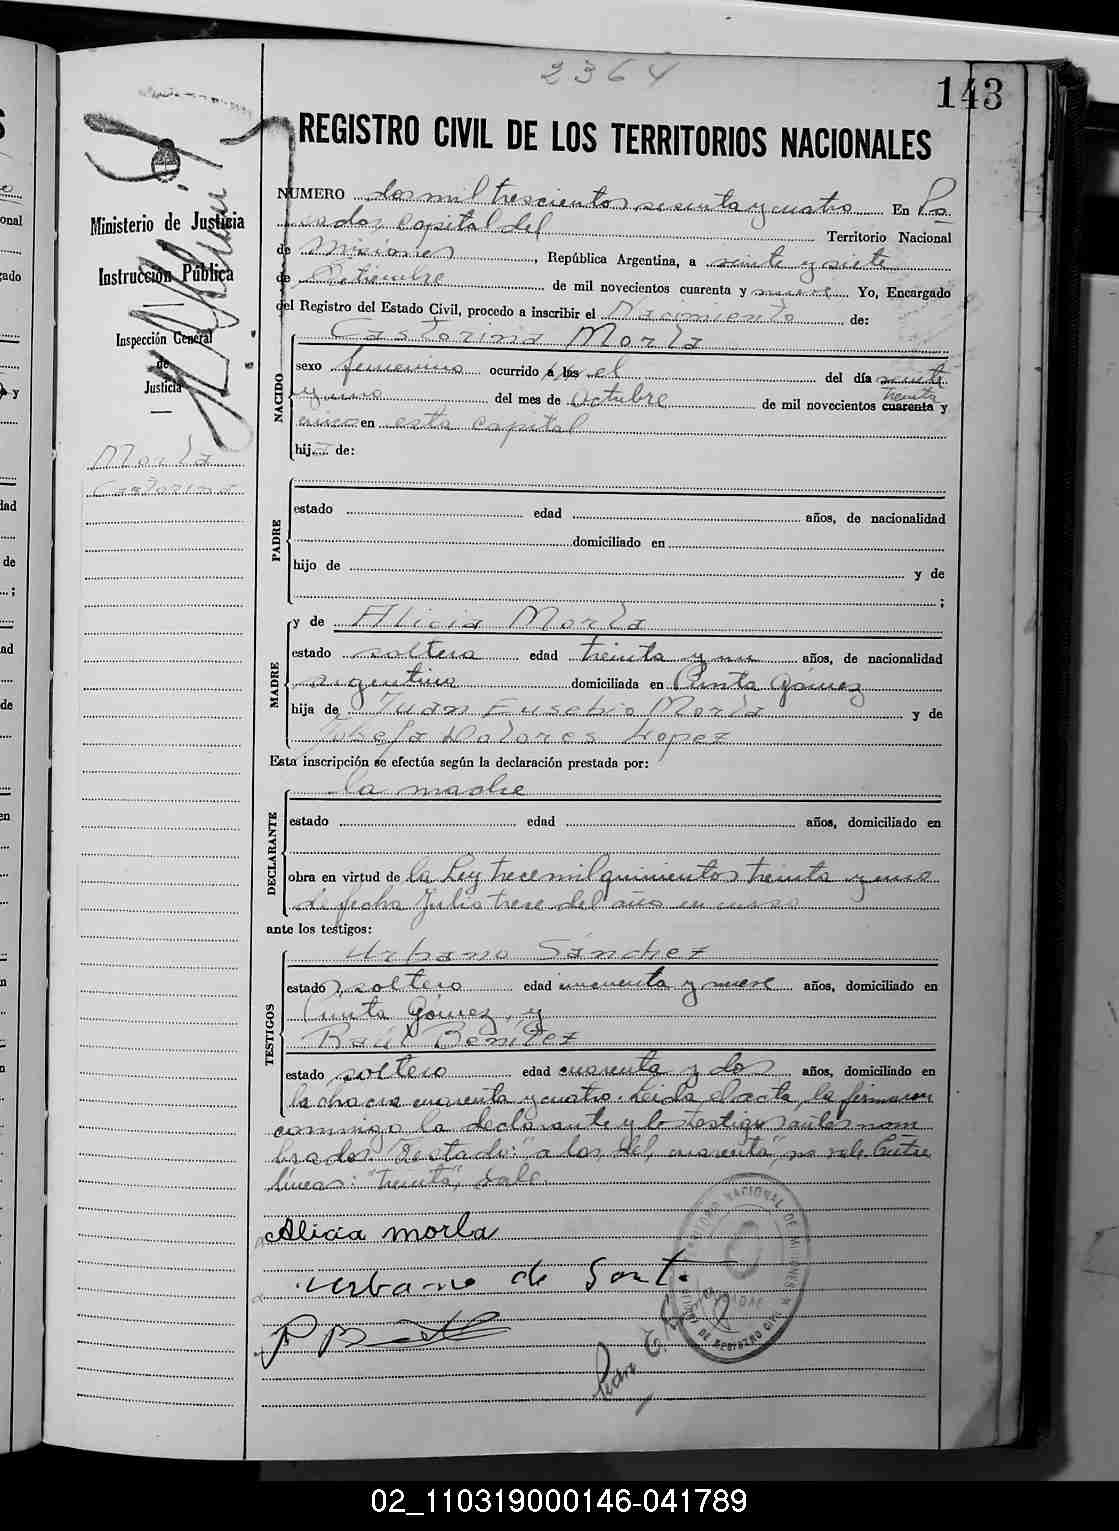 2364
143
REGISTRO CIVIL DE LOS TERRITORIOS NACIONALES
Ministerio de Justicia
e
Instrucción Pública
Inspección General
de
Justicia
Morla
Castorina
NUMERO dos mil trescientos sesenta y cuatro En Po-
sadas, capital del Territorio Nacional
de Misiones, República Argentina, a veinte y siete
de Setiembre de mil novecientos cuarenta y nueve Yo, Encargado
del Registro del Estado Civil, procedo a inscribir el Nacimiento de:
Castorina Morla
NACIDO
sexo femenino ocurrido a las el del día veinte
treinta
y uno del mes de Octubre de mil novecientos cuarenta y
cinco en esta capital
hij de:
PADRE
estado edad años, de nacionalidad
domiciliado en
hijo de y de
;
MADRE
y de Alicia Morla
estado soltera edad treinta y un años, de nacionalidad
argentina domiciliada en Punta Gómez
hija de Juan Eusebio Morla y de
Josefa Dolores Lopez
Esta inscripción se efectúa según la declaración prestada por:
DECLARANTE
la madre
estado edad años, domiciliado en
obra en virtud de la Ley trece mil quinientos treinta y uno
de fecha Julio trece del año en curso
ante los testigos:
TESTIGOS
Urbano Sánchez
estado soltero edad cincuenta y nueve años, domiciliado en
Punta Gómez, y
Raúl Benítez
estado soltero edad cuarenta y dos años, domiciliado en
la chacra cuarenta y cuatro. Leida el acta, la firmaron
conmigo la declarante y los testigos antes nom
brados. Testado: "a las, del, cuarenta", no vale. Entre
líneas: "treinta", vale.
Alicia morla
urbano de Sant.
Pedro E.
02_110319000146-041789